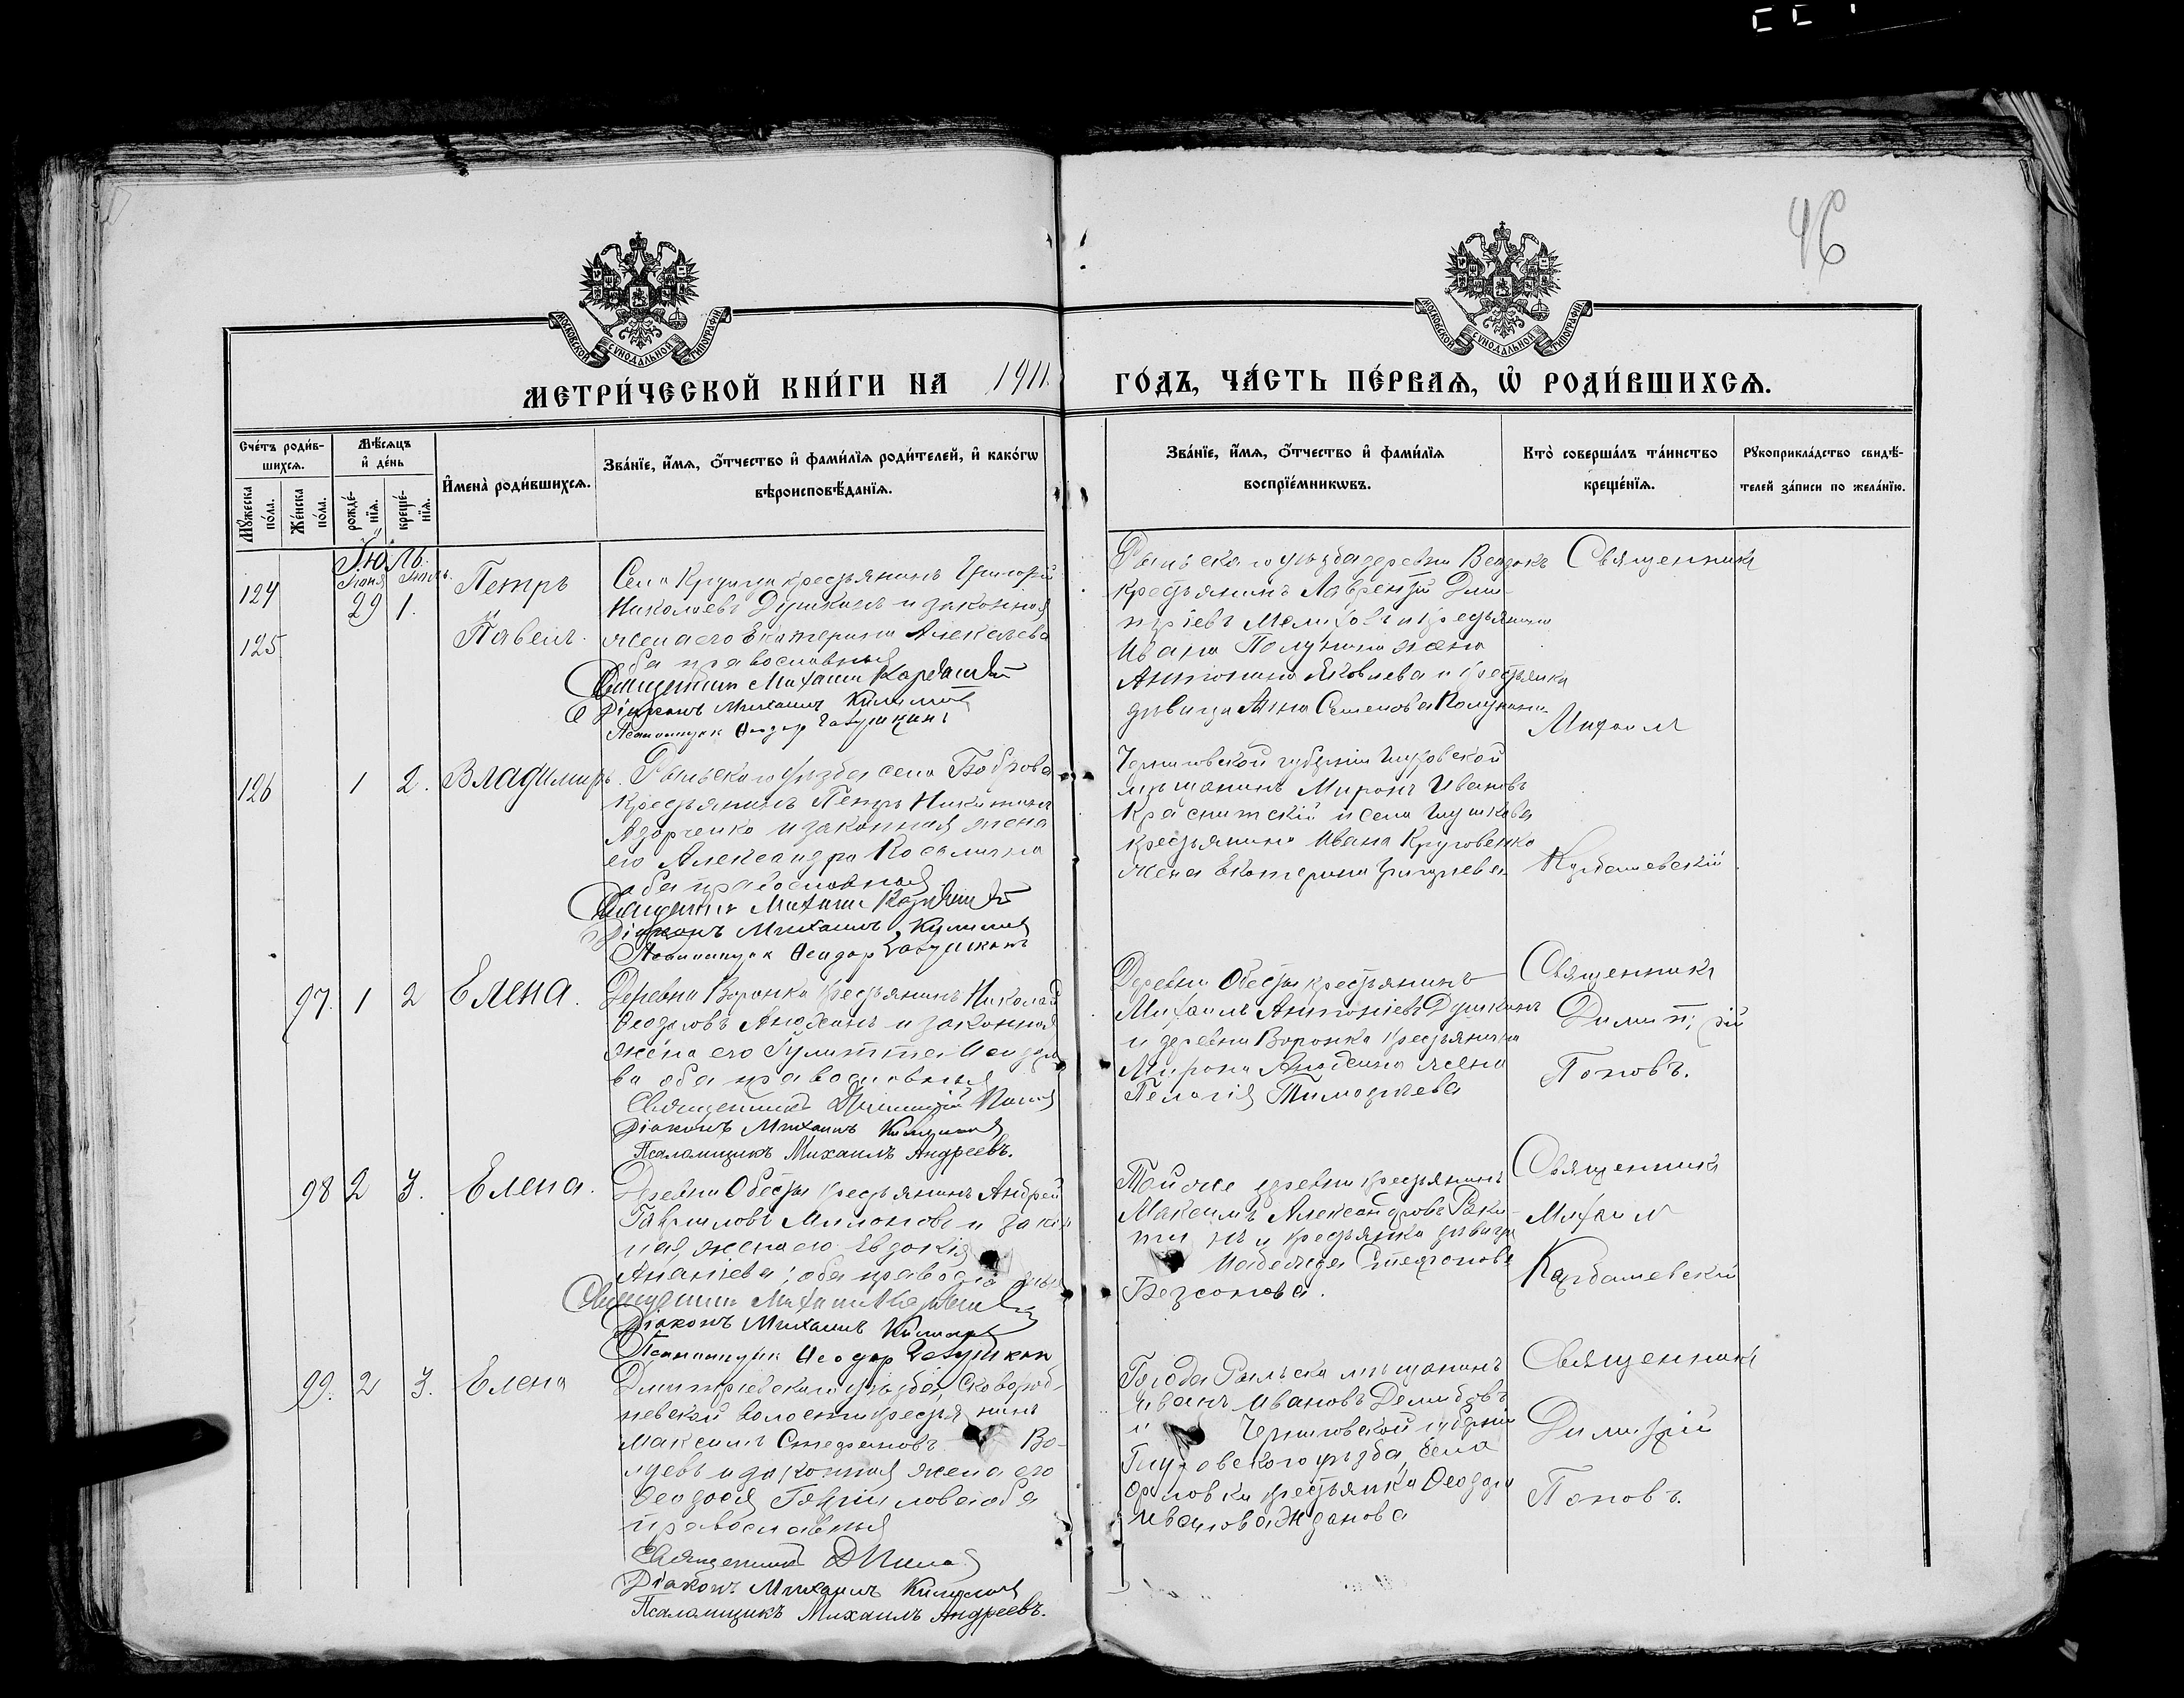 46
МОСКОВСКОЙ СѴНОДАЛЬНОЙ ТИПОГРАФІИ
МОСКОВСКОЙ СѴНОДАЛЬНОЙ ТИПОГРАФІИ
МЕТРИ́ЧЕСКОЙ КНИ́ГИ НА 1911. ГО́ДЪ, ЧА́СТЬ ПЕ́РВАѦ, Ѽ РОДИ́ВШИХСѦ.
Сче́тъ роди́в-
шихсѧ.
Мѣ́сѧцъ
и҆ де́нь
Мꙋ́жеска по́ла.
Же́нска по́ла.
рожде́-
нїѧ.
креще́-
нїѧ.
И҆мена̀ роди́вшихсѧ.
Зва́нїе, и҆́мѧ, ѻ҆́тчество и҆ фами́лїѧ роди́телей, и҆ како́гѡ
вѣроисповѣ́данїѧ.
Зва́нїе, и҆́мѧ, ѻ҆́тчество и҆ фами́лїѧ
воспрїе́мникѡвъ.
Кто̀ соверша́лъ та́инство
креще́нїѧ.
Рꙋкоприкла́дство свидѣ́-
телей за́писи по жела́нїю.
Іюль.
Іюня Іюль.
124 29 1. Петръ
и
125 Павелъ.
Села крестьянинъ Григорій
Николаевъ Душкинъ и законная
жена его Екатерина Алексѣева
оба православныя
Священникъ Михаилъ Кардашевскій
Діаконъ Михаилъ
Псаломщикъ Ѳеодоръ
Рыльскаго уѣзда деревни
крестьянинъ Лаврентій Дми-
тріевъ и крестьянина
Ивана Полунина жена
Антонина Яковлева и крестьянка
дѣвица Анна Семенова Полунина
Священникъ
Михаилъ
Кардашевскій
126 1 2. Владимиръ.
Рыльскаго уѣзда села Боброва
крестьянинъ Петръ Никитинъ
Азорченко и законная жена
его Александра Косьмина
оба православныя
Священникъ Михаилъ Кардашевскій
Діаконъ Михаилъ
Псаломщикъ Ѳеодоръ
Черниговской губерніи Глуховской
мѣщанинъ Миронъ Ивановъ
и села
крестьянина Ивана Круговенко
жена Екатерина Григорьева
97. 1 2 Елена.
Деревни Воронка крестьянинъ Николай
Ѳеодоровъ Анохинъ и законная
жена его Іулитта Исидоро-
ва оба православныя
Священникъ Димитрій Поповъ
Діаконъ Михаилъ
Псаломщикъ Михаилъ Андреевъ.
Деревни Обесты крестьянинъ
Михаилъ Антоніевъ Душкинъ
и деревни Воронка крестьянина
Мирона Анохина жена
Пелагія Тимоѳеева
Священникъ
Димитрій
Поповъ.
98 2 3. Елена.
Деревни Обесты крестьянинъ Андрей
Гавриловъ Милоновъ и закон
ная жена его Евдокія
Ананіева; оба православныя
Священникъ Михаилъ Кардашевскій
Діаконъ Михаилъ
Псаломщикъ Ѳеодоръ
Той же деревни крестьянинъ
Максимъ Александровъ Раки-
тинъ и крестьянка дѣвица
Надежда Стефанова
Безсонова.
Священникъ
Михаилъ
Кардашевскій
99. 2 3. Елена
Дмитріевскаго уѣзда, Сковород-
невской волости крестьянинъ
Максимъ Стефановъ
и законная жена его
Ѳеодосія Гаврилова оба
православныя
Священникъ Д
Діаконъ Михаилъ
Псаломщикъ Михаилъ Андреевъ.
Города Рыльска мѣщанинъ
Иванъ Ивановъ
и Черниговской губерніи
Глуховскаго уѣзда, села
Орловки крестьянка Ѳеодора
Иванова Жданова
Священникъ
Димитрій
Поповъ.